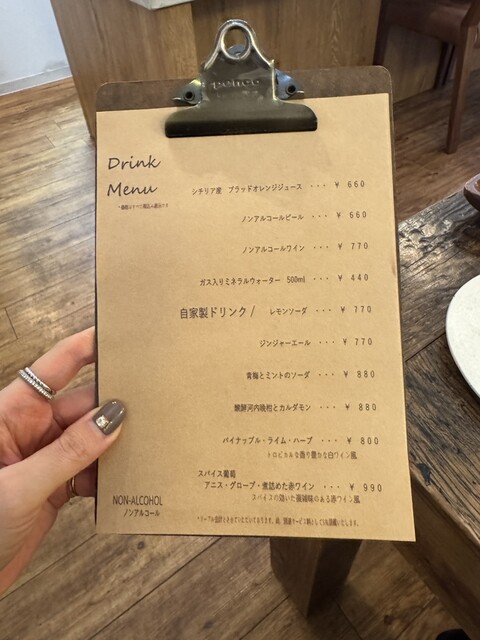 penco
Drink
Menu
シチリア産 ブラッドオレンジジュース ・・・ ¥ 660
ノンアルコールビール ・・・ ¥ 660
ノンアルコールワイン ・・・ ¥ 770
ガス入りミネラルウォーター 500ml ・・・ ¥ 440
自家製ドリンク / レモンソーダ ・・・ ¥ 770
ジンジャーエール ・・・ ¥ 770
青梅とミントのソーダ ・・・ ¥ 880
河内晩柑とカルダモン ・・・ ¥ 880
パイナップル・ライム・ハーブ ・・・ ¥ 800
トロピカルな香り豊かな白ワイン風
スパイス葡萄
アニス・グローブ・煮詰めた赤ワイン ・・・ ¥ 990
スパイスの効いた複雑味のある赤ワイン風
NON-ALCOHOL
ノンアルコール